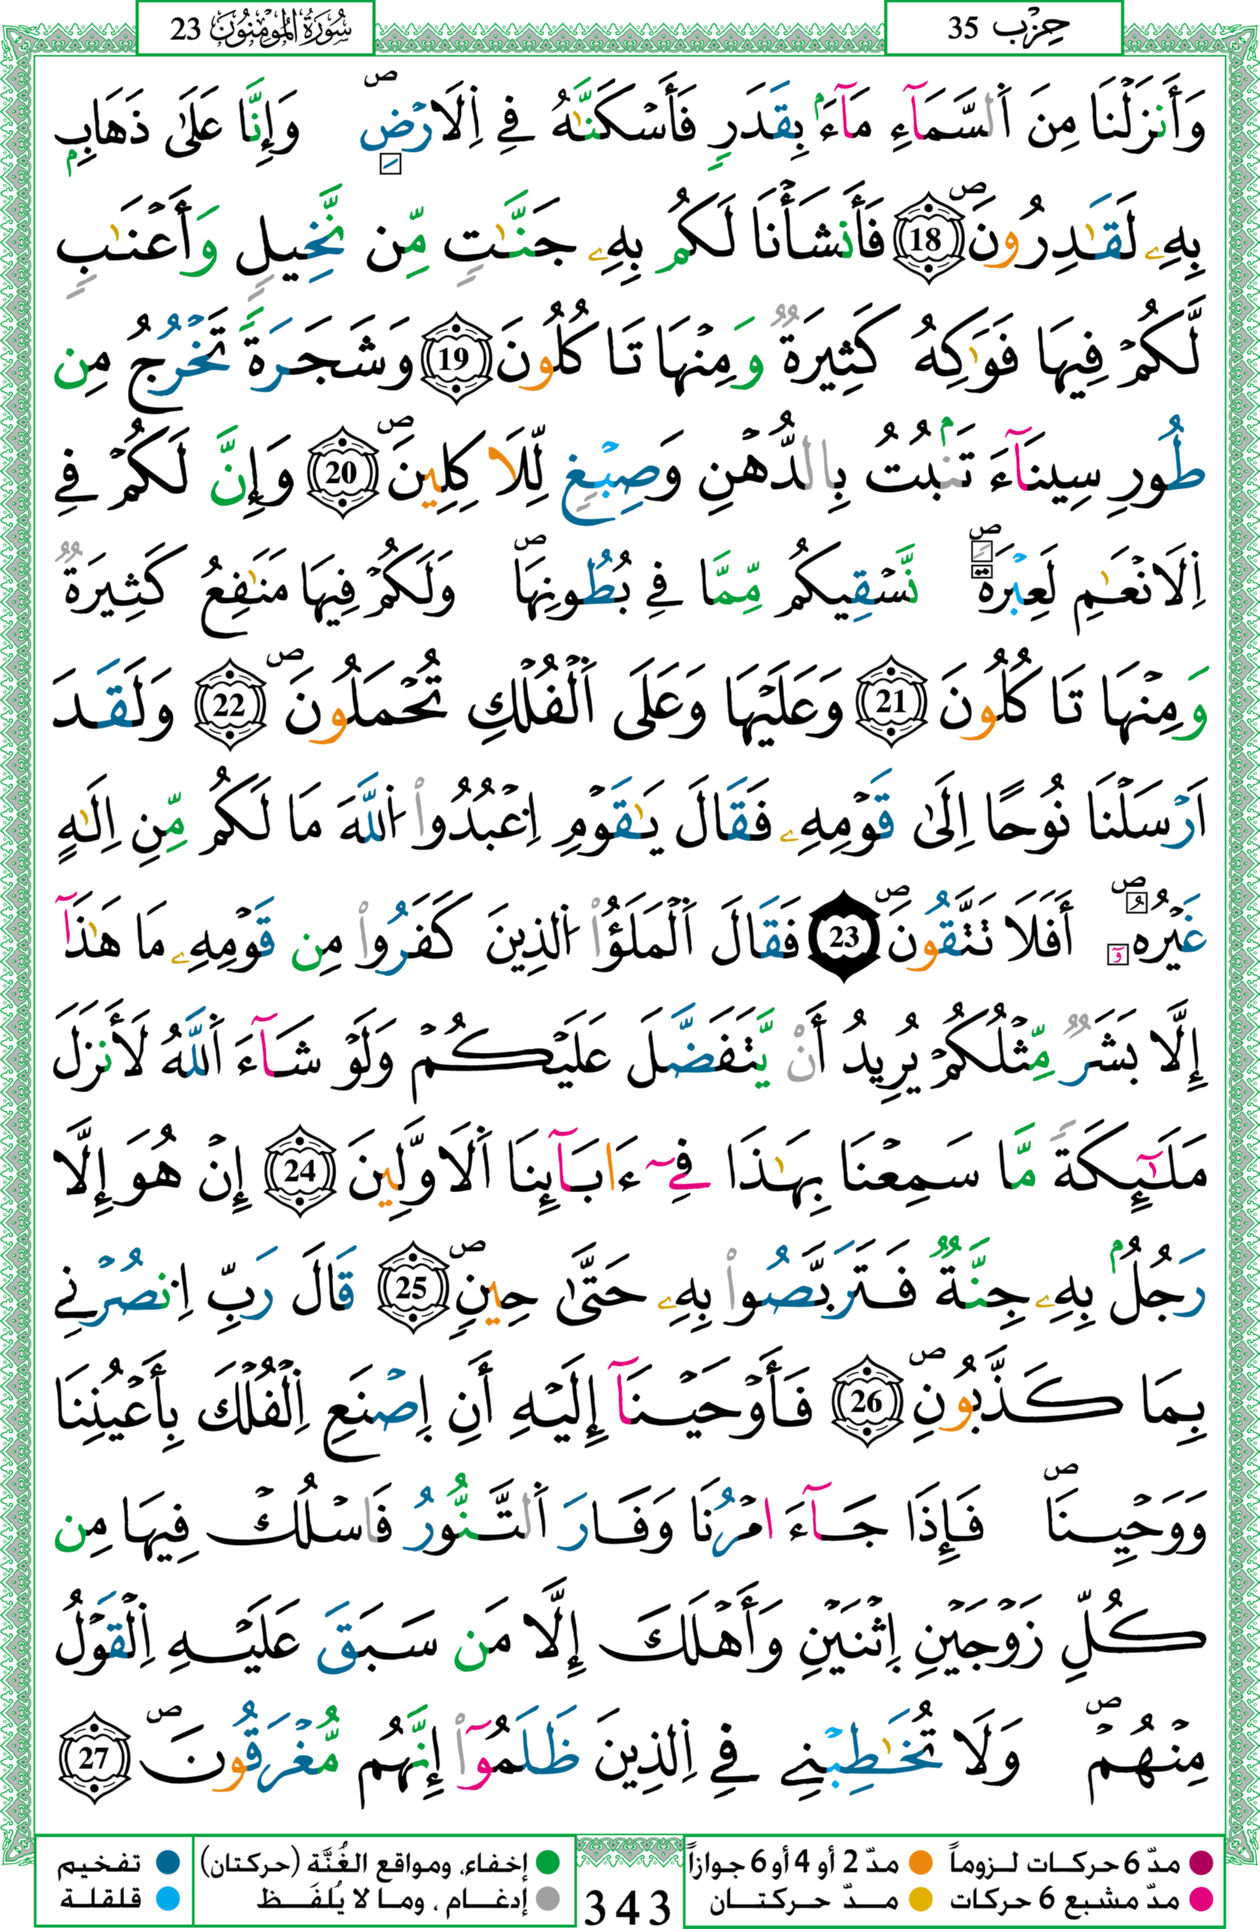 سُورَةُ المُومِنُونَ 23
حِزْب 35
وَأَنزَلْنَا مِنَ اَ۬لسَّمَآءِ مَآءَۢ بِقَدَرٖ فَأَسْكَنَّٰهُ فِے اِ۬لَارْضِۖ وَإِنَّا عَلَىٰ ذَهَابِۢ
بِهِۦ لَقَٰدِرُونَۖ 18 فَأَنشَأْنَا لَكُم بِهِۦ جَنَّٰتٖ مِّن نَّخِيلٖ وَأَعْنَٰبٖ
لَّكُمْ فِيهَا فَوَٰكِهُ كَثِيرَةٞ وَمِنْهَا تَاكُلُونَ 19 وَشَجَرَةٗ تَخْرُجُ مِن
طُورِ سِينَآءَ تَنۢبُتُ بِالدُّهْنِ وَصِبْغٖ لِّلَاكِلِينَۖ 20 وَإِنَّ لَكُمْ فِے
اِ۬لَانْعَٰمِ لَعِبْرَةٗۖ نَّسْقِيكُم مِّمَّا فِے بُطُونِهَاۖ وَلَكُمْ فِيهَا مَنَٰفِعُ كَثِيرَةٞ
وَمِنْهَا تَاكُلُونَ 21 وَعَلَيْهَا وَعَلَى اَ۬لْفُلْكِ تُحْمَلُونَۖ 22 وَلَقَدَ
اَرْسَلْنَا نُوحًا اِلَىٰ قَوْمِهِۦ فَقَالَ يَٰقَوْمِ اِ۟عْبُدُواْ اُ۬للَّهَ مَا لَكُم مِّنِ اِلَٰهٍ
غَيْرُهُۥٓۖ أَفَلَا تَتَّقُونَۖ 23 فَقَالَ اَ۬لْمَلَؤُاْ اُ۬لذِينَ كَفَرُواْ مِن قَوْمِهِۦ مَا هَٰذَآ
إِلَّا بَشَرٞ مِّثْلُكُمْ يُرِيدُ أَنْ يَّتَفَضَّلَ عَلَيْكُمْ وَلَوْ شَآءَ اَ۬للَّهُ لَأَنزَلَ
مَلَٰٓئِكَةٗ مَّا سَمِعْنَا بِهَٰذَا فِےٓ ءَابَآئِنَا اَ۬لَاوَّلِينَ 24 إِنْ هُوَ إِلَّا
رَجُلُۢ بِهِۦ جِنَّةٞ فَتَرَبَّصُواْ بِهِۦ حَتَّىٰ حِينٖۖ 25 قَالَ رَبِّ اِ۟نصُرْنِے
بِمَا كَذَّبُونِۖ 26 فَأَوْحَيْنَآ إِلَيْهِ أَنِ اِ۪صْنَعِ اِ۬لْفُلْكَ بِأَعْيُنِنَا
وَوَحْيِنَاۖ فَإِذَا جَآءَ امْرُنَا وَفَارَ اَ۬لتَّنُّورُ فَاسْلُكْ فِيهَا مِن
كُلِّ زَوْجَيْنِ اِ۪ثْنَيْنِ وَأَهْلَكَ إِلَّا مَن سَبَقَ عَلَيْهِ اِ۬لْقَوْلُ
مِنْهُمْۖ وَلَا تُخَٰطِبْنِے فِے اِ۬لذِينَ ظَلَمُوٓاْ إِنَّهُم مُّغْرَقُونَۖ 27
مدّ 6 حركات لزوماً
مدّ 2 أو 4 أو 6 جوازاً
إخفاء، ومواقع الغُنَّة (حركتان)
تفخيم
مدّ مشبع 6 حركات
مدّ حركتان
343
إدغام ، وما لا يُلفَظ
قلقلة